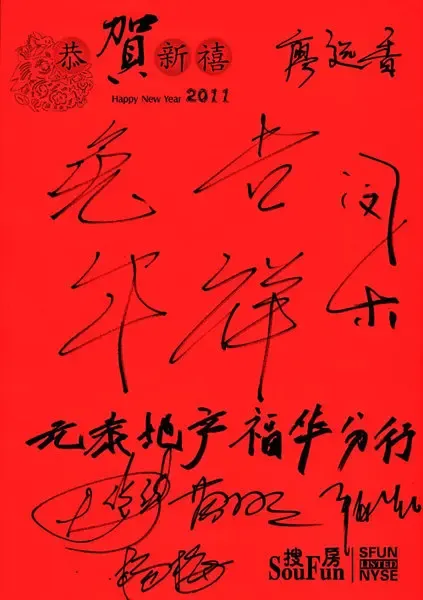 恭賀新禧
Happy New Year 2011
廖远香
兔年
吉祥
元泰地产福华分行
杨梅
搜房
SouFun
SFUN
LISTED
NYSE